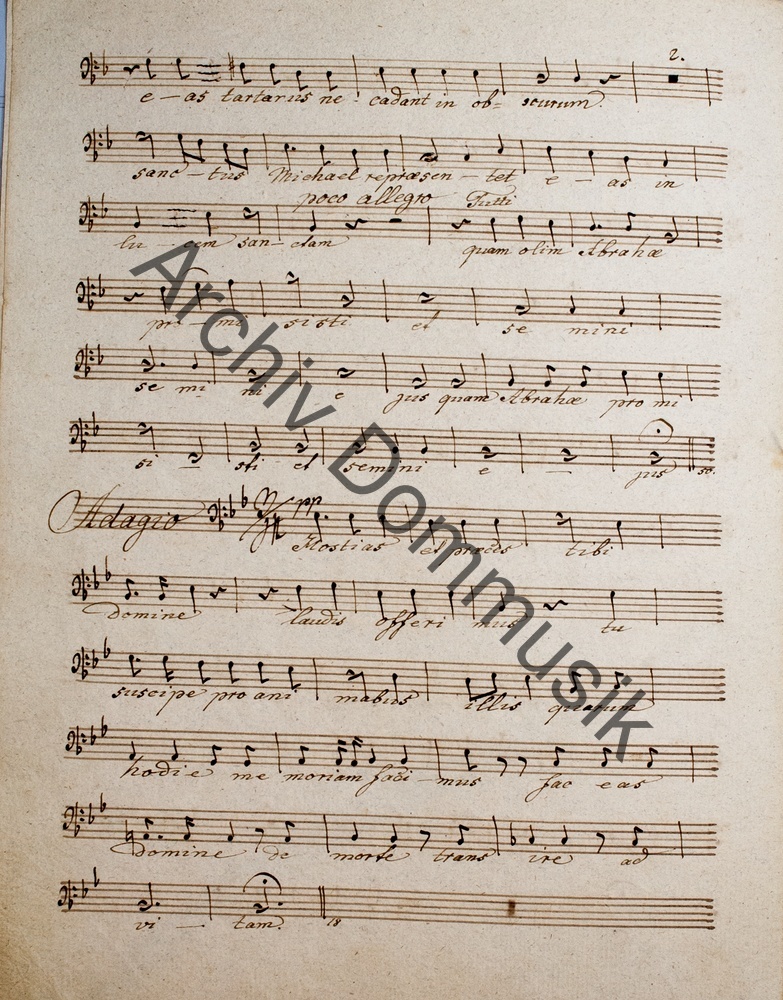 2.
e - as tartarus ne cadant in ob- scurum.
sanc - tus Michael repræsen - tet e - as in
poco allegro Tutti
lu - cem san - ctam quam olim Abrahæ
pro - mi si sti et se mini
se mi ni e jus quam Abrahæ pro mi
si - sti - et semini e - jus 50.
Adagio pp
Hostias et præces tibi
Domine laudis offeri mus tu
suscipe pro ani mabus illis quarum
hodi e me moriam faci - mus fac eas
Domine de morte trans ire ad
vi - tam. 18
Archiv Dommusik